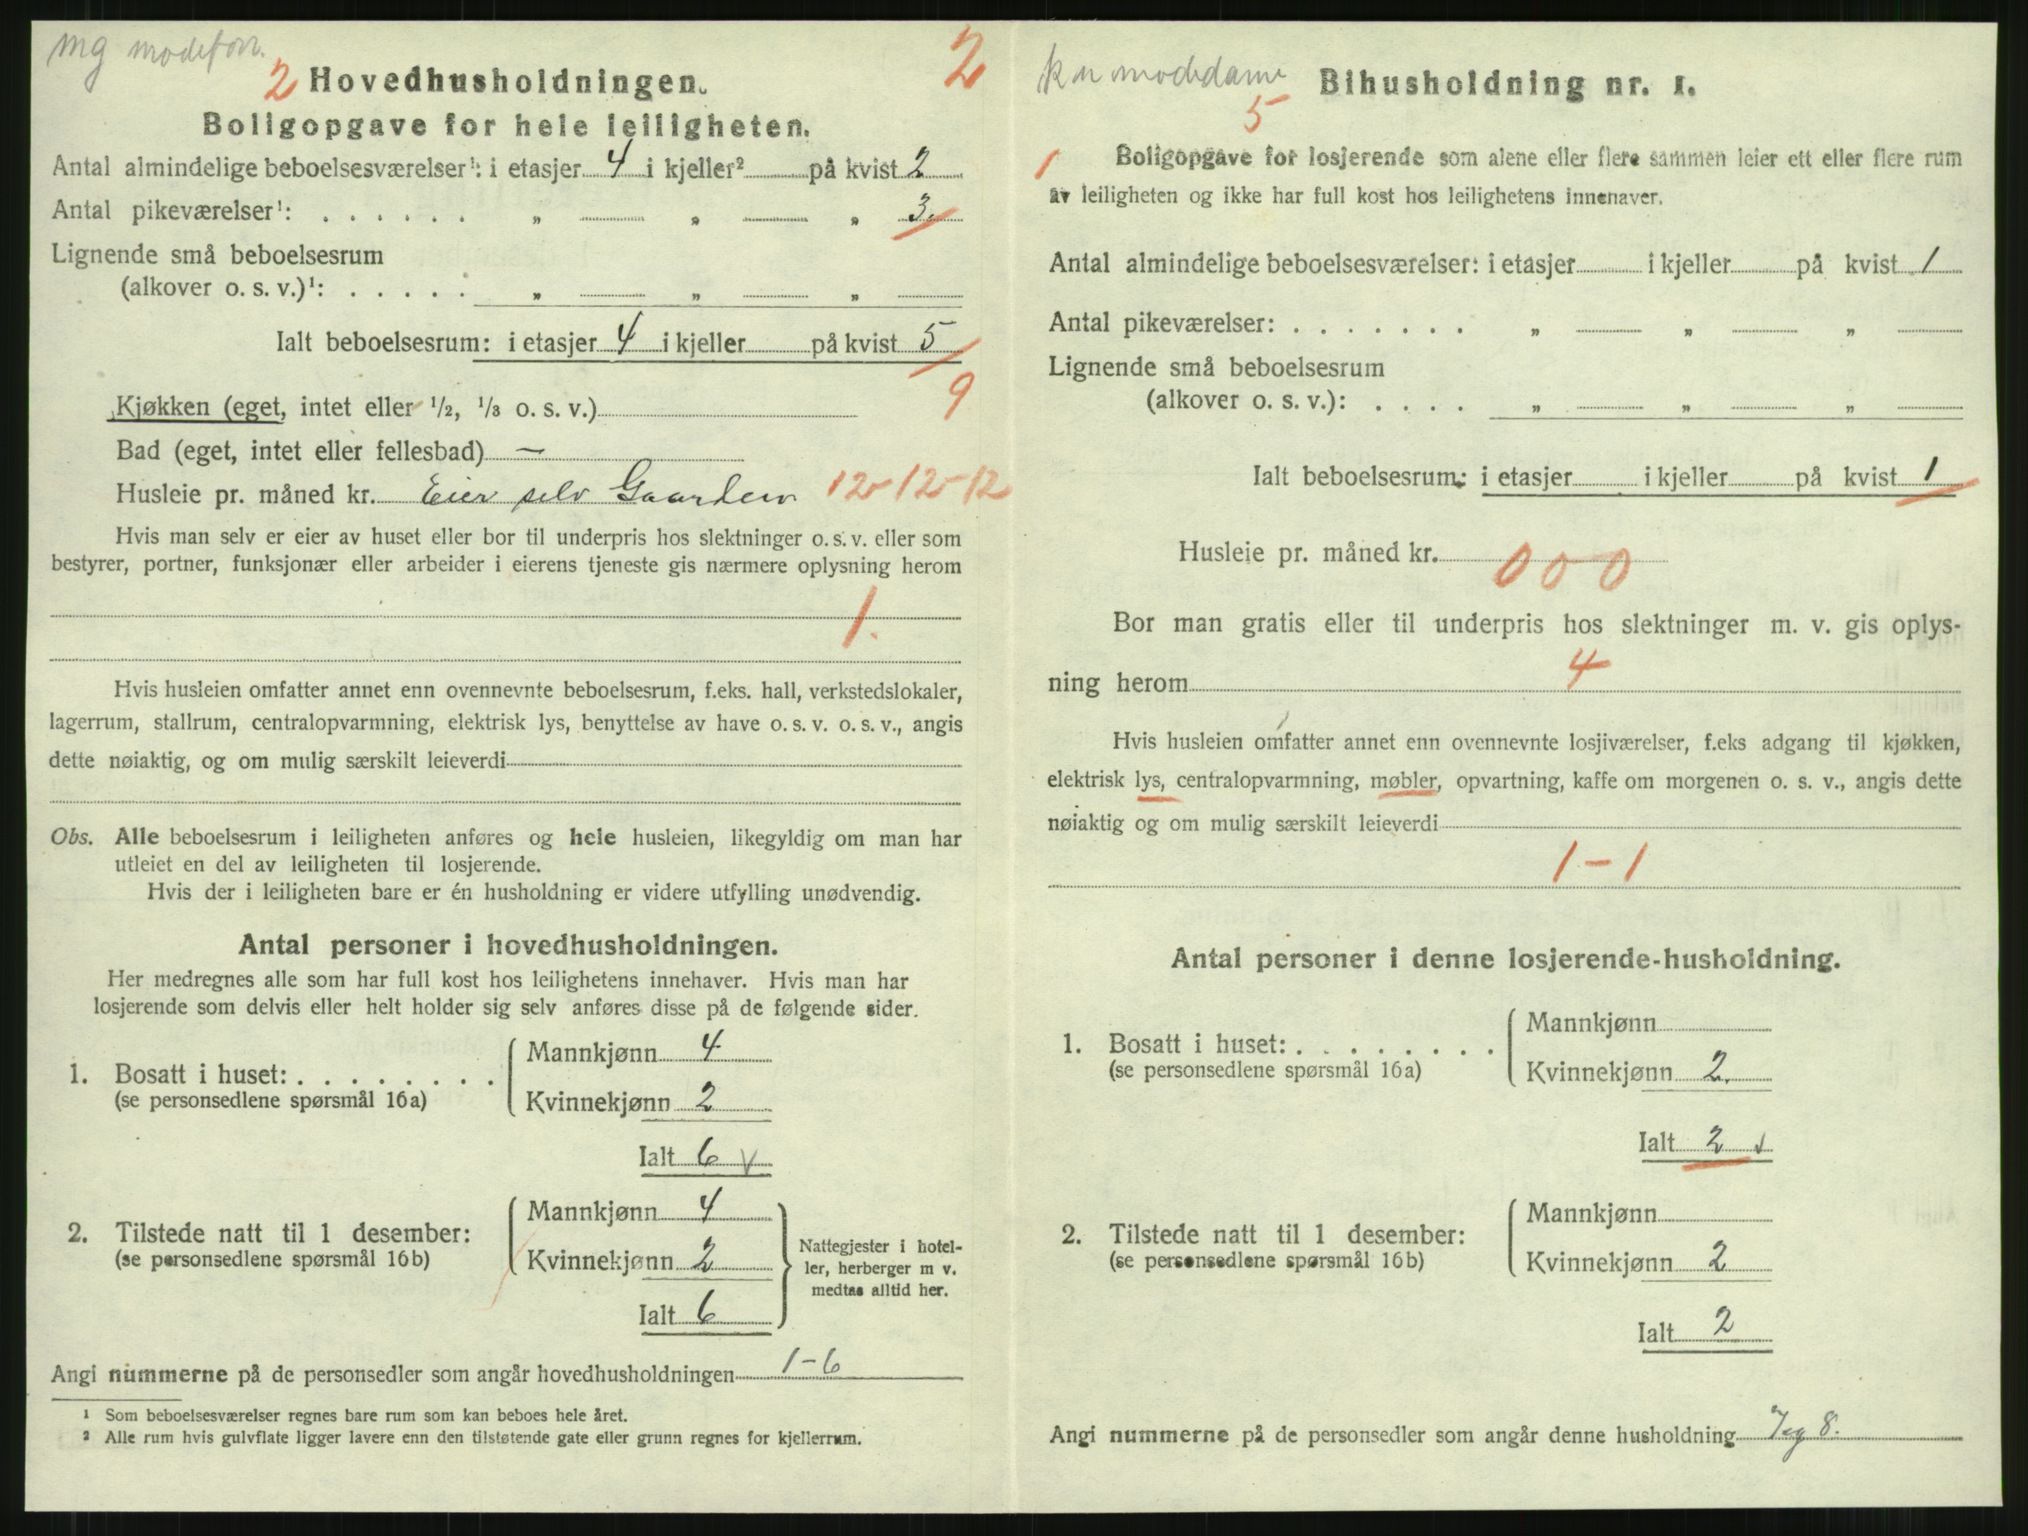 mg
2 Hovedhusholdningen. 2
Boligopgave for hele leiligheten.
Antal almindelige beboelsesværelser¹: i etasjer 4 i kjeller² på kvist 2
Antal pikeværelser¹: . . . . . . „ „ „ 3.
Lignende små beboelsesrum
(alkover o. s. v.)¹: . . . . . „ „ „
Ialt beboelsesrum: i etasjer 4 i kjeller på kvist 5
9
Kjøkken (eget, intet eller ½, ⅓ o. s. v.)
Bad (eget, intet eller fellesbad) —
Husleie pr. måned kr. Eier selv Gaarden 12-12-12
Hvis man selv er eier av huset eller bor til underpris hos slektninger o. s. v. eller som
bestyrer, portner, funksjonær eller arbeider i eierens tjeneste gis nærmere oplysning herom
1.
Hvis husleien omfatter annet enn ovennevnte beboelsesrum, f.eks. hall, verkstedslokaler,
lagerrum, stallrum, centralopvarmning, elektrisk lys, benyttelse av have o. s. v. o. s. v., angis
dette nøiaktig, og om mulig særskilt leieverdi
Obs. Alle beboelsesrum i leiligheten anføres og hele husleien, likegyldig om man har
utleiet en del av leiligheten til losjerende.
Hvis der i leiligheten bare er én husholdning er videre utfylling unødvendig.
Antal personer i hovedhusholdningen.
Her medregnes alle som har full kost hos leilighetens innehaver. Hvis man har
losjerende som delvis eller helt holder sig selv anføres disse på de følgende sider.
Mannkjønn 4
1. Bosatt i huset: . . . . . . . .
(se personsedlene spørsmål 16a)
Kvinnekjønn 2
Ialt 6 v
Mannkjønn 4
2. Tilstede natt til 1 desember:
(se personsedlene spørsmål 16b)
Kvinnekjønn 2
Ialt 6
Nattegjester i hotel-
ler, herberger m v.
medtas alltid her.
Angi nummerne på de personsedler som angår hovedhusholdningen 1-6
¹ Som beboelsesværelser regnes bare rum som kan beboes hele året.
² Alle rum hvis gulvflate ligger lavere enn den tilstøtende gate eller grunn regnes for kjellerrum.
modedame Bihusholdning nr. 1.
5
1 Boligopgave for losjerende som alene eller flere sammen leier ett eller flere rum
av leiligheten og ikke har full kost hos leilighetens innenaver.
Antal almindelige beboelsesværelser: i etasjer i kjeller på kvist 1
Antal pikeværelser: . . . . . . . „ „ „
Lignende små beboelsesrum
(alkover o. s. v.): . . . . „ „ „
Ialt beboelsesrum: i etasjer i kjeller på kvist 1
Husleie pr. måned kr. 0 0-0
Bor man gratis eller til underpris hos slektninger m. v. gis oplys-
ning herom 4
Hvis husleien omfatter annet enn ovennevnte losjiværelser, f.eks adgang til kjøkken,
elektrisk lys, centralopvarmning, møbler, opvartning, kaffe om morgenen o. s. v., angis dette
nøiaktig og om mulig særskilt leieverdi
1-1
Antal personer i denne losjerende-husholdning.
Mannkjønn
1. Bosatt i huset: . . . . . . . .
(se personsedlene spørsmål 16a)
Kvinnekjønn 2.
Ialt 2 v
Mannkjønn
2. Tilstede natt til 1 desember:
(se personsedlene spørsmål 16b)
Kvinnekjønn 2
Ialt 2
Angi nummerne på de personsedler som angår denne husholdning 7 og 8.